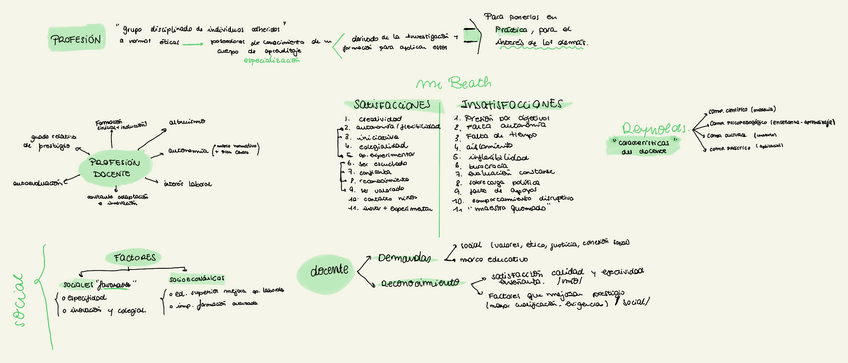 PROFESIÓN
"grupo disciplinado de individuos adheridos"
a normas éticas → poseedores de conocimiento de un
cuerpo de aprendizaje
especialización
derivado de la investigación +
formación para aplicar estos
Para ponerlos en
Práctica, para el
interés de los demás.
Mc Beath
SATISFACCIONES
1. creatividad
2. autonomía / flexibilidad
3. iniciativa
4. colegialidad
5. op. experimentar
6. ser escuchado
7. confianza
8. reconocimiento
9. ser valorado
10. contacto niños
11. innov + experimentar
INSATISFACCIONES
1. Presión por objetivos
2. Falta autonomía
3. Falta de tiempo
4. aislamiento
5. inflexibilidad
6. burocracia
7. evaluación constante
8. sobrecarga política
9. falta de apoyos
10. comportamiento disruptivo
11. "maestro quemado"
Reynolds
"características
del docente"
como científico (materia)
como psicopedagógico (enseñanza-aprendizaje)
como cultural
como práctico
PROFESIÓN
DOCENTE
Formación
(inicial + inducción)
altruismo
autonomía (marco normativo)
interés laboral
continua adaptación
e innovación
autoevaluación
grado relativo
de prestigio
social
FACTORES
SOCIALES
o especificidad
o inovación y colegial
SOCIOECONÓMICOS
o ed. superior mejora op. laborales
o imp. formación avanzada
docente
Demandas
social (valores, ética, justicia, conexión social)
marco educativo
Reconocimiento
satisfacción calidad y efectividad
enseñanza.
Factores que mejoran prestigio
(mayor cualificación, exigencia) /social/